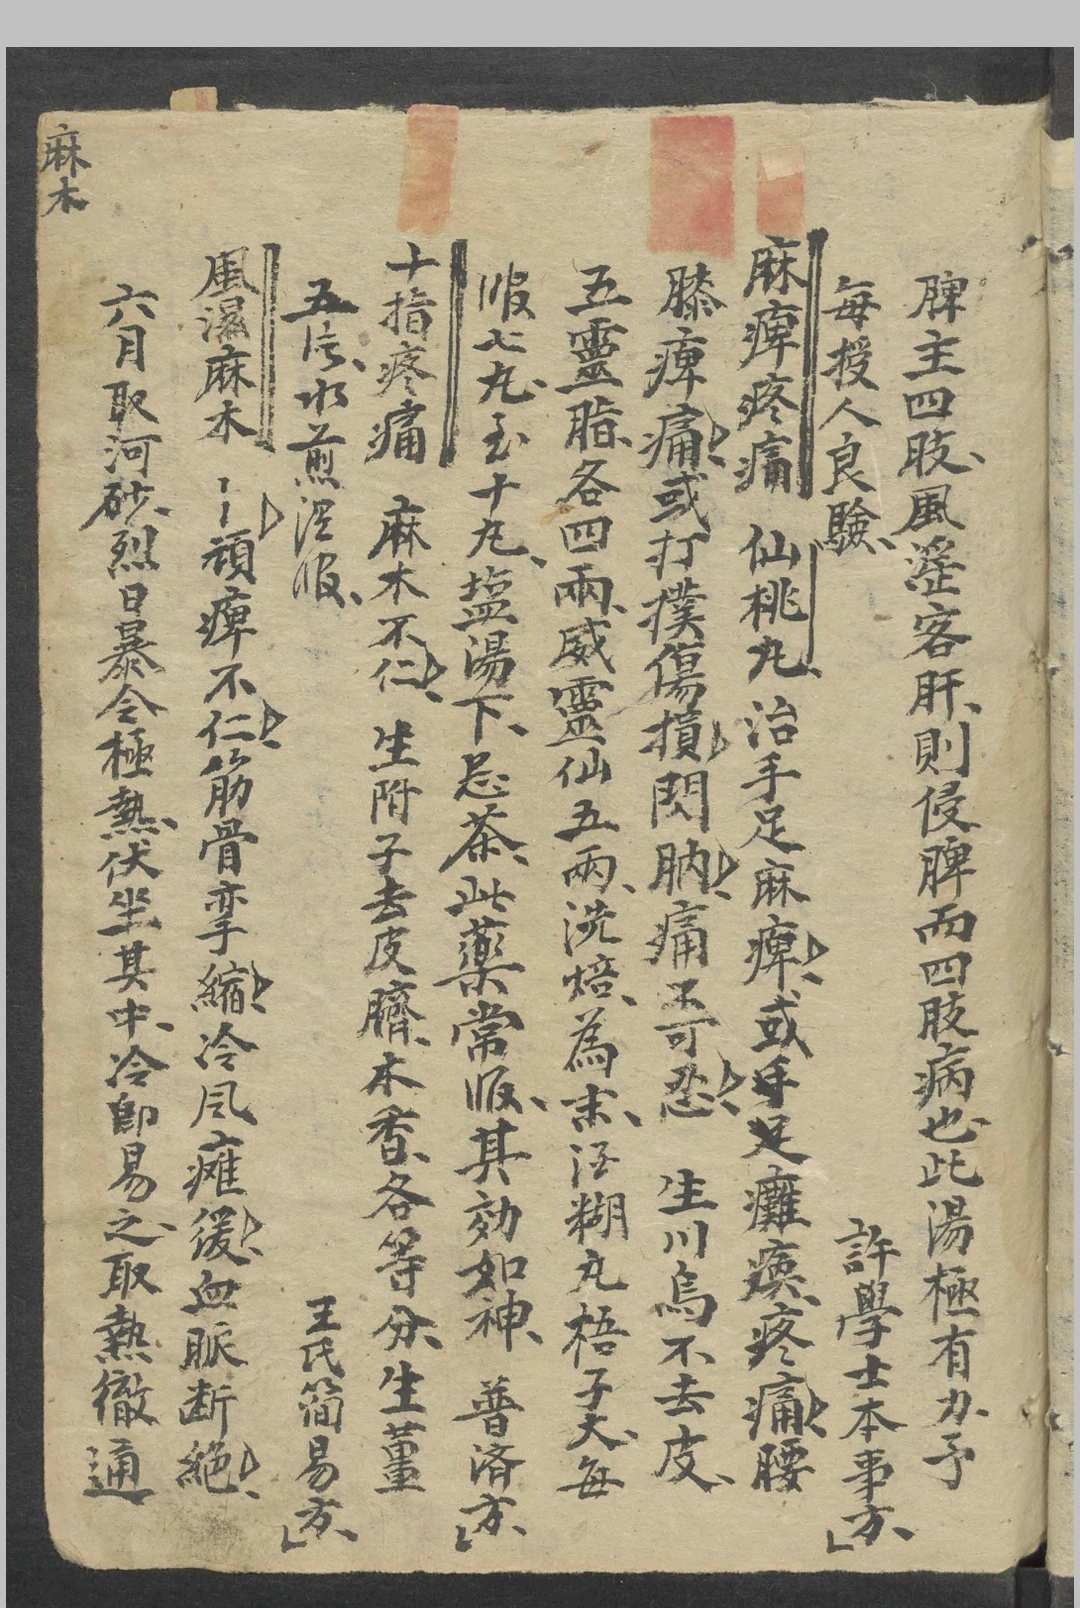 脾主四肢風淫客肝則侵脾而四肢病也此湯極有力予
每授人良驗 許學士本事方
麻痺疼痛 仙桃丸 治手足麻痺或手足癱瘓疼痛腰
膝痺痛或打撲傷損閃肭痛不可忍 生川烏不去皮
五靈脂各四兩威靈仙五兩洗焙為末酒糊丸梧子大每
服七丸至十丸塩湯下忌茶此藥常服其効如神 普済方
十指疼痛 麻木不仁 生附子去皮臍木香各等分生薑
五片水煎温服 王氏簡易方
風濕麻木 頑痺不仁筋骨挛縮冷风瘫緩血脈断絕
六月取河砂烈日暴令極熱伏坐其中冷即易之取熱徹通
麻木